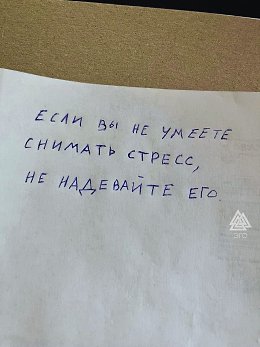 ЕСЛИ ВЫ НЕ УМЕЕТЕ
СНИМАТЬ СТРЕСС,
НЕ НАДЕВАЙТЕ ЕГО.
ЭГО